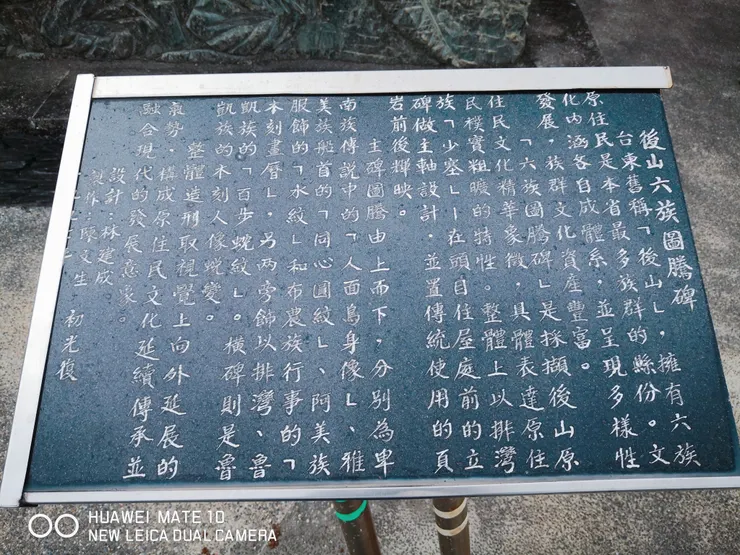 後山六族圖騰碑
台東舊稱「後山」,擁有六族
原住民是本省最多族群的縣份。文
化內涵各自成體系,並呈現多樣性
發展,族群文化資產豐富。
「六族圖騰碑」是採擷後山原
住民文化精華象徵,具體表達原住
民樸實粗曠的特性。整體上以排灣
族「少塞」—在頭目住屋庭前的立
碑做主軸設計,並置傳統使用的頁
岩前後輝映。
主碑圖騰由上而下,分別為卑
南族傳說中的「人面鳥身像」、雅
美族船首的「同心圓紋」、阿美族
服飾的「水紋」和布農族行事的「
木刻畫曆」,另兩旁飾以排灣、魯
凱族的「百步蛇紋」。橫碑則是魯
凱族的木刻人像蛻變。
整體造形取視覺上向外延展的
氣勢,構成原住民文化延續傳承並
融合現代的發展意象。
設計:林建成
製作:陳文生 初光復
HUAWEI MATE 10
NEW LEICA DUAL CAMERA